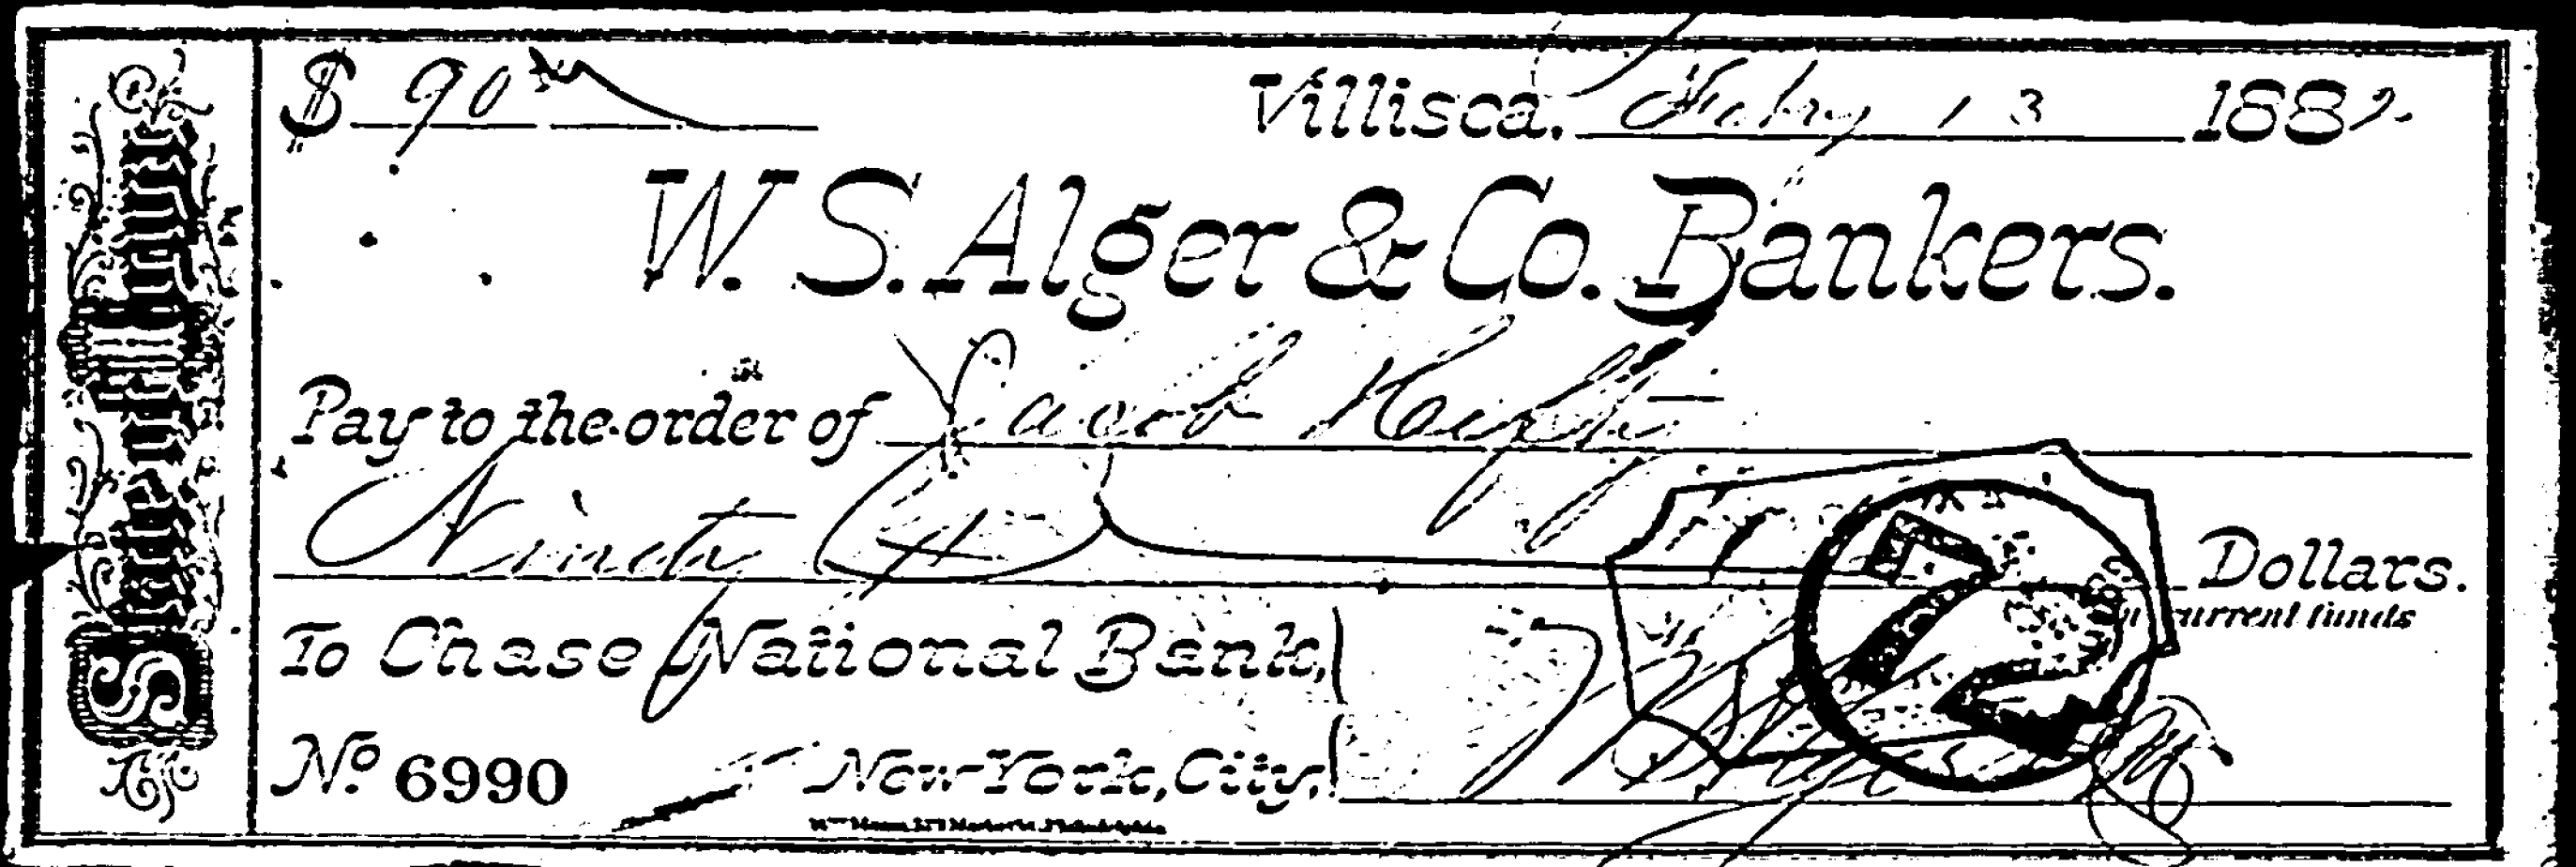 $ 90 Villisca. Feby 13 1882
W. S. Alger & Co. Bankers.
Pay to the order of Jacob
Ninety Dollars.
in current funds
To Chase National Bank,
No. 6990 New York, City,
2